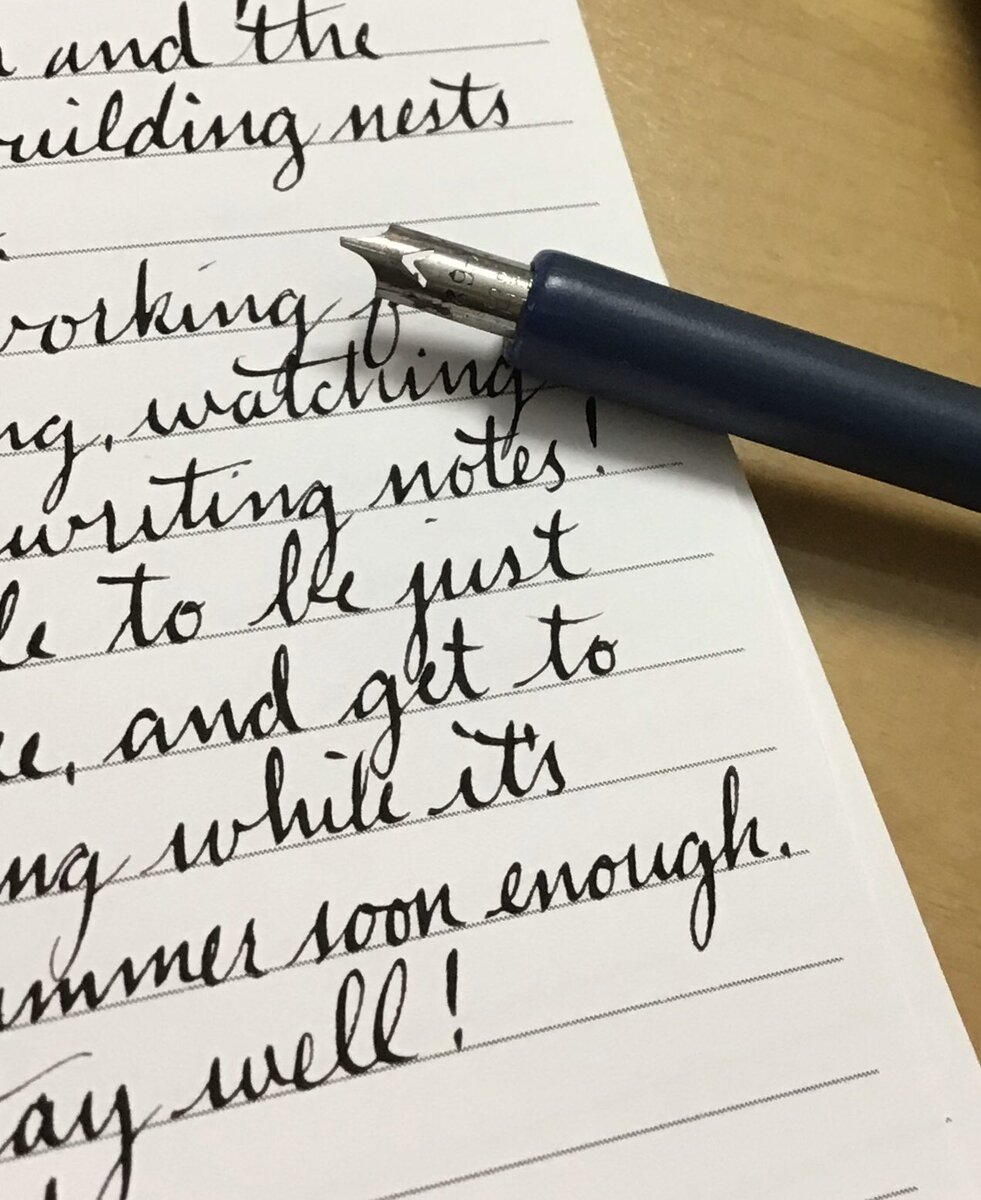 and the
building nests
working
watching
writing notes!
to be just
, and get to
while it's
summer soon enough.
ay well!